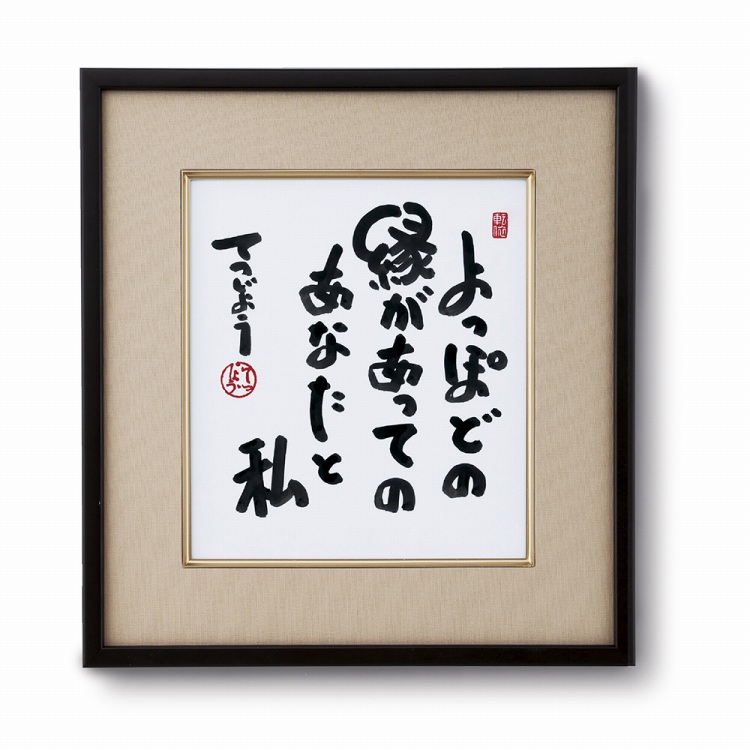 よっぽどの
縁があっての
あなたと
私
てつじょう
てつ
じょう